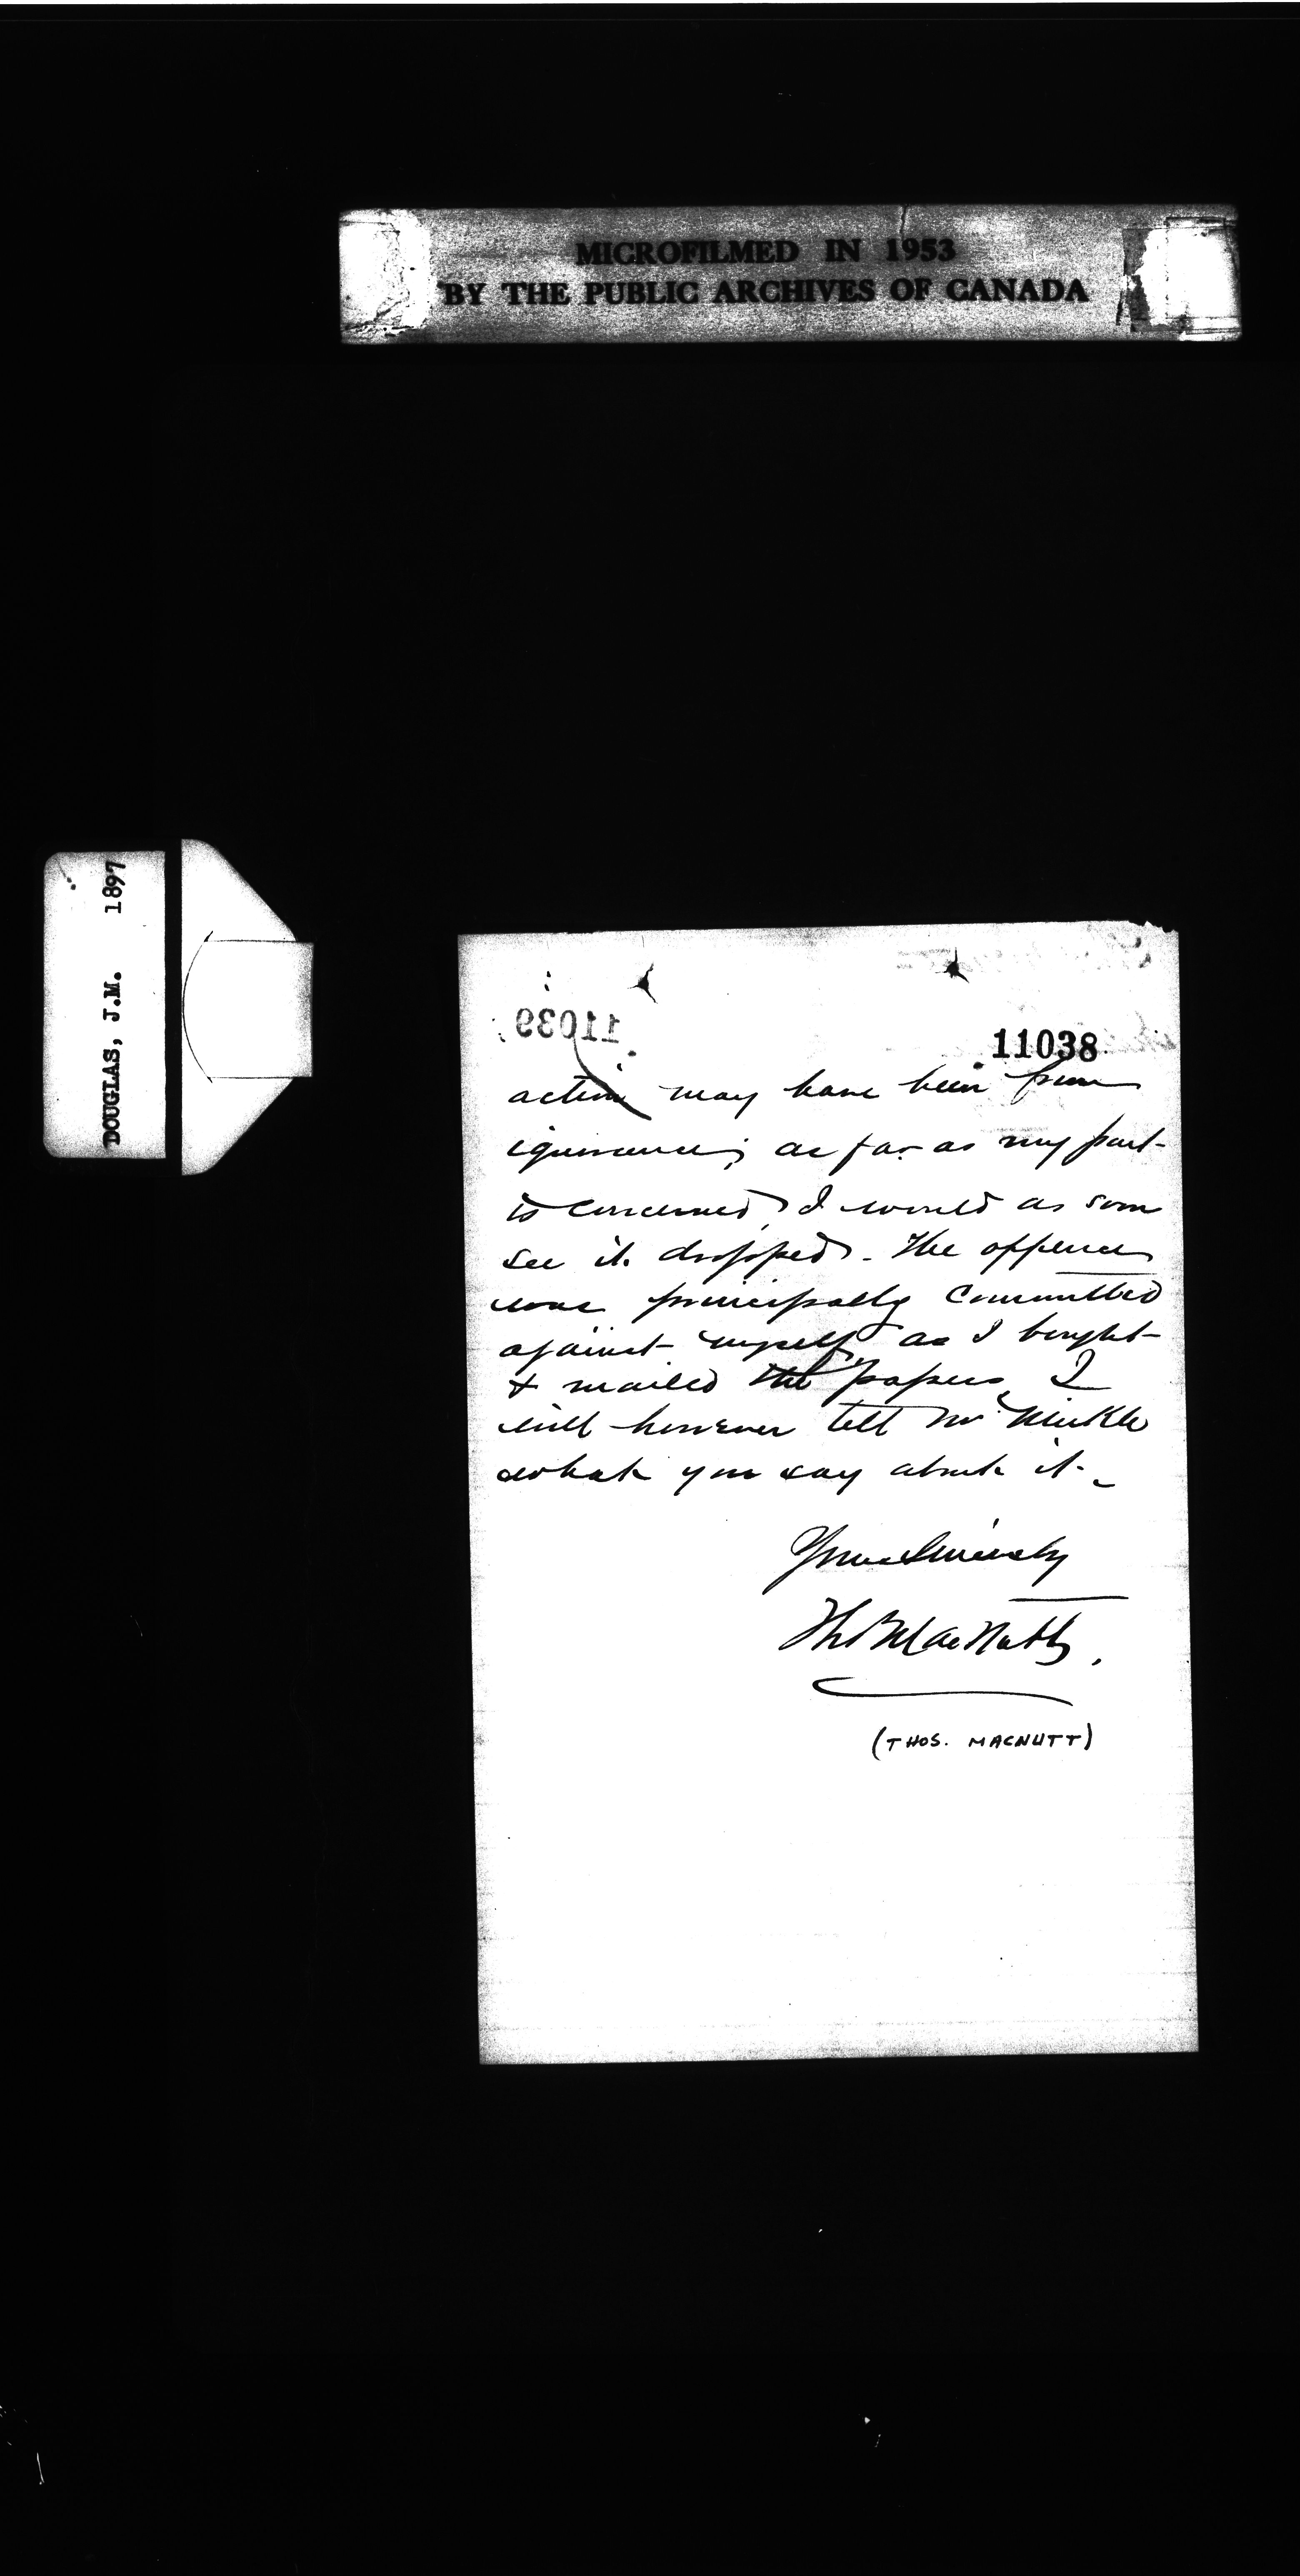 MICROFILMED IN 1953
BY THE PUBLIC ARCHIVES OF CANADA
DOUGLAS, J.M. 1897
11039
11038
action may have been from
ignorance; as far as my part
is concerned, I would as soon
see it dropped. The offence
was principally committed
against myself, as I bought
& mailed the papers, I
will however tell Mr
what you say about it.
Yours Sincerely
Thos MacNutt.
(THOS. MACNUTT)